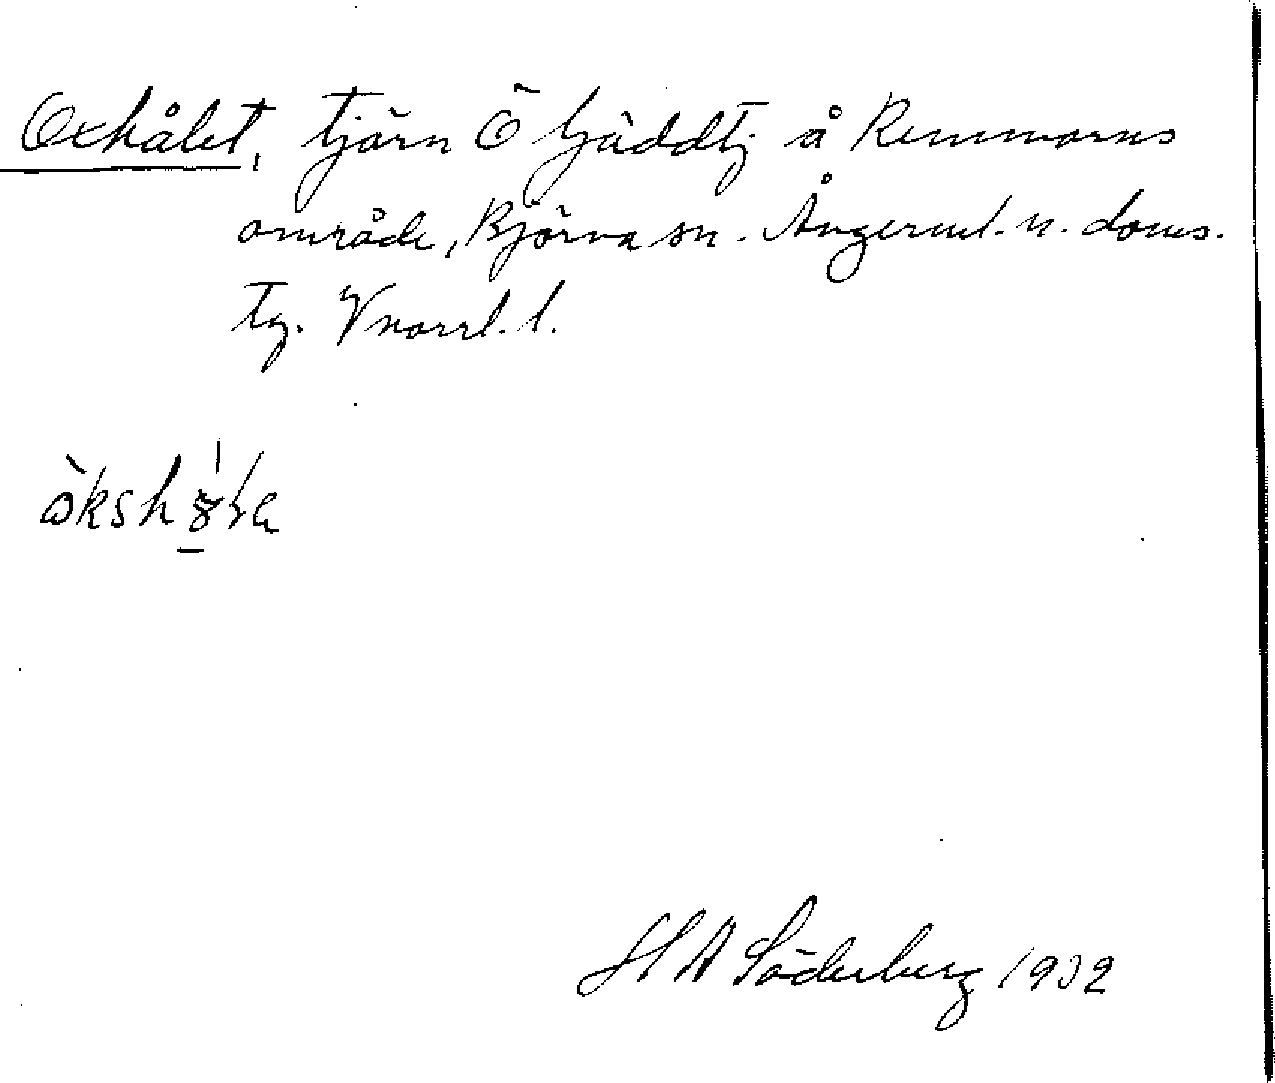 Oxhålet, tjärn Ö Gäddtj å Remmarns
område, Björna sn. Ångerml. n. doms.
tg. Vnorrl. l.
H A Söderberg 1932